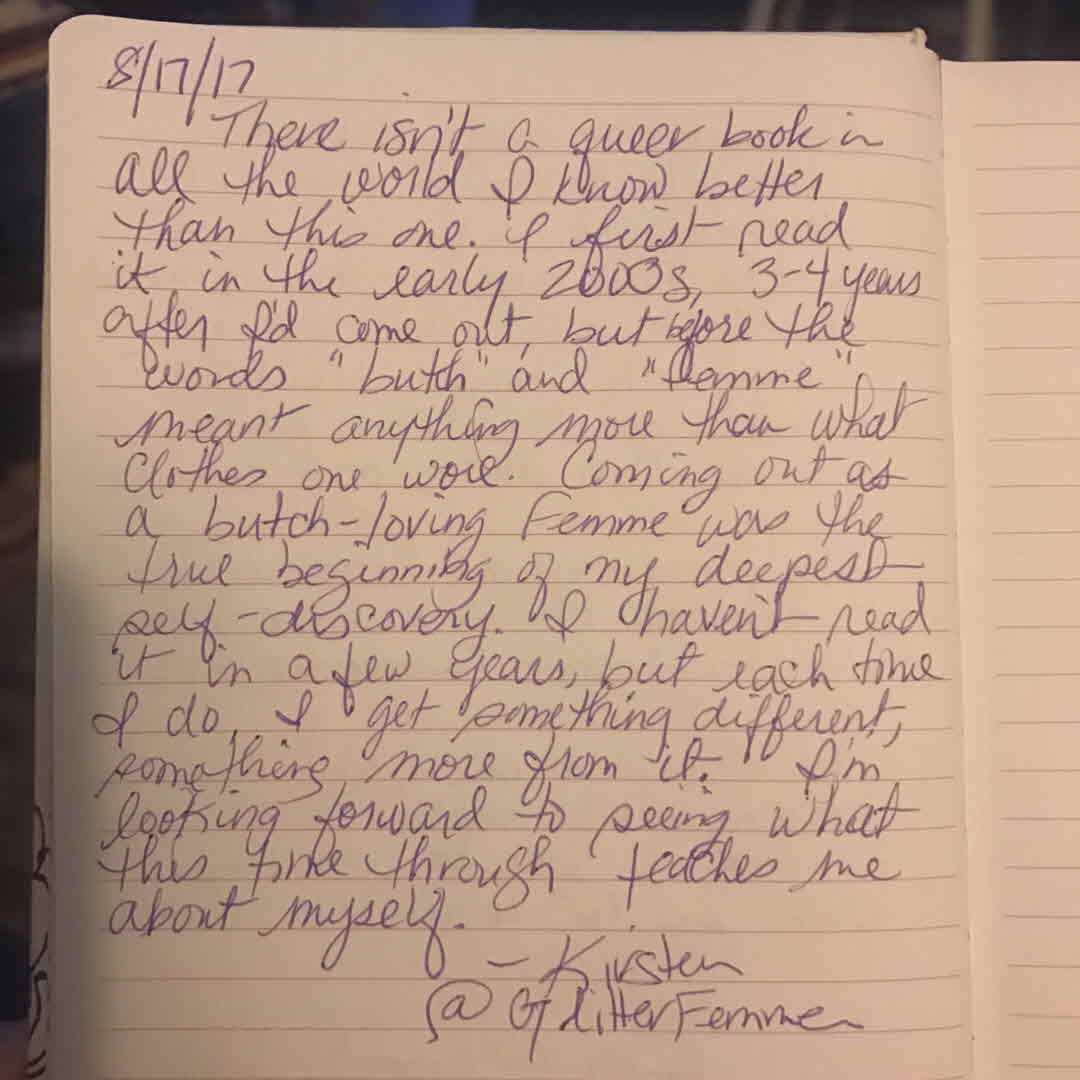 8/17/17
There isn't a queer book in
all the world I know better
than this one. I first read
it in the early 2000s, 3-4 years
after I'd come out, but before the
words "butch" and "femme"
meant anything more than what
clothes one wore. Coming out as
a butch-loving Femme was the
true beginning of my deepest
self-discovery. I haven't read
it in a few years, but each time
I do, I get something different,
something more from it. I'm
looking forward to seeing what
this time through teaches me
about myself.
- Kirsten
@GlitterFemme